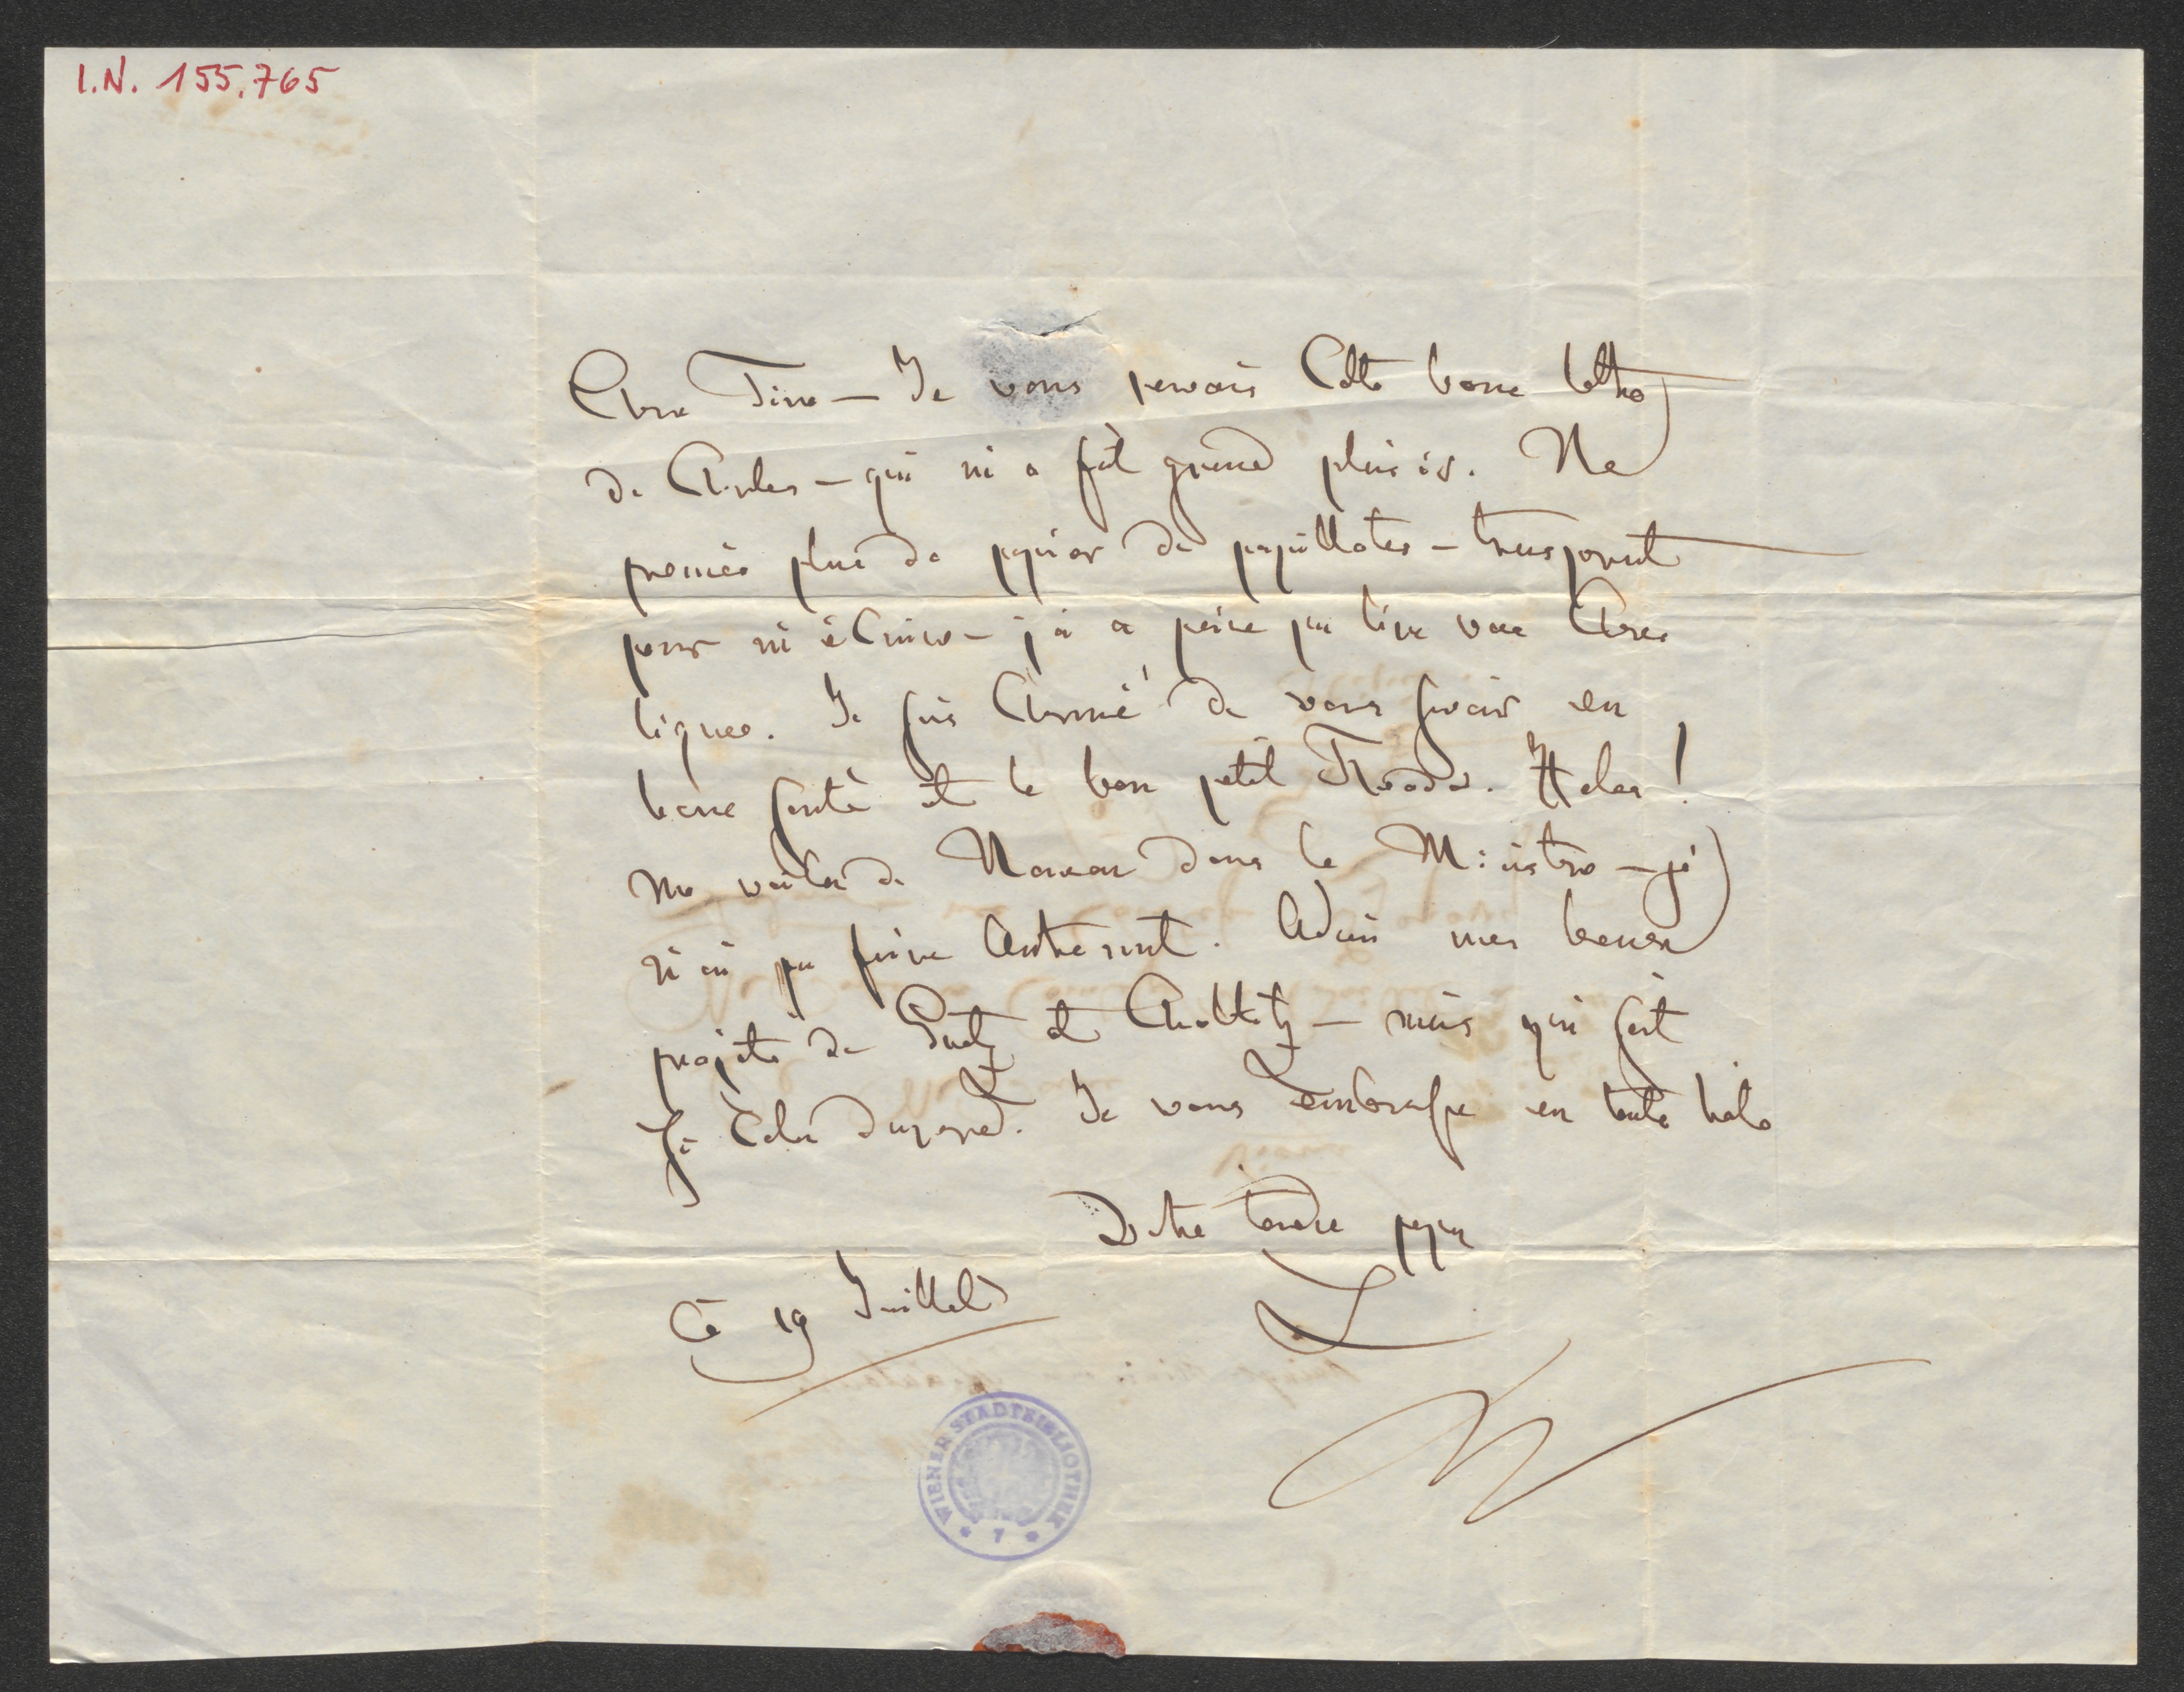 I.N. 155.765
Chere Tine — Je vous renvois Cette bonne lettre
de Charles — qui m'a fait grand plaisir. Ne
prenés plus de papier de papillotes — transparent
pour m'écrire — j'ai a peine pu lire vos Cheres
lignes. Je suis Charmé de vous savoir en
bonne santé et le bon petit Theodor. Helas!
me voila de Nouveau dans le Ministere — je
n'ai pu faire Autrement. Adieu mes beaux
projets de Gratz et — mais qui sait
Si Cela durera. Je vous embrasse en toute hate
Votre tendre papa
L
Ce 19 Juillet
WIENER STADTBIBLIOTHEK
* 7 *